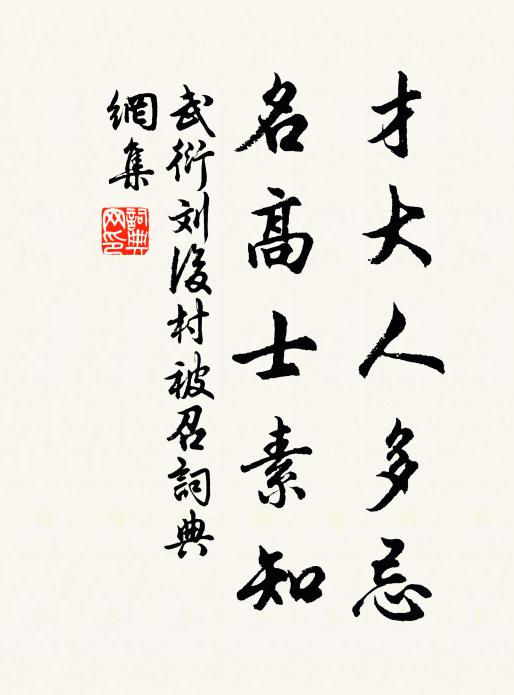 才大人多忌
名高士素知
武衍刘後村被召詞典
網集
詞典
网印